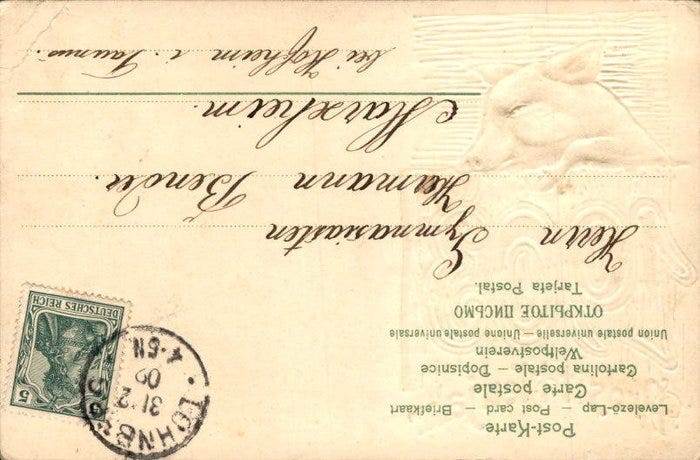 Post-Karte
Levelező-Lap — Post card — Briefkaart
Carte postale
Cartolina postale — Dopisnice
Weltpostverein
Union postale universelle — Unione postale universale
ОТКРЫТОЕ ПИСЬМО
Tarjeta Postal.
5
DEUTSCHES REICH
31 12
09
4-5N
Herrn Gymnasiasten
Hermann Bender
Marxheim.
bei Hofheim i. Taunus.